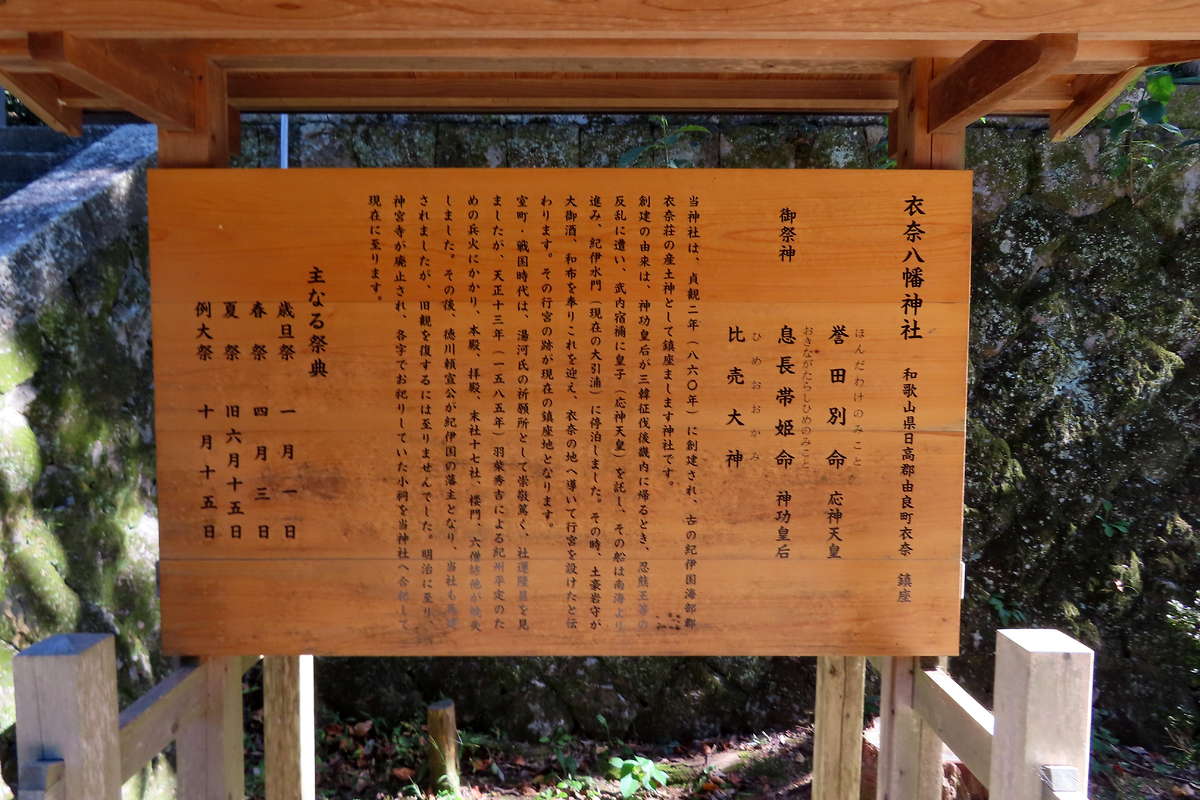 衣奈八幡神社　和歌山県日高郡由良町衣奈　鎮座
ほんだわけのみこと
誉田別命　応神天皇
おきながたらしひめのみこと
御祭神　息長帯姫命　神功皇后
ひめおおかみ
比売大神
当神社は、貞観二年（八六〇年）に創建され、古の紀伊国海部郡
衣奈荘の産土神として鎮座まします神社です。
創建の由来は、神功皇后が三韓征伐後畿内に帰るとき、忍熊王等の
反乱に遭い、武内宿禰に皇子（応神天皇）を託し、その船は南海より
進み、紀伊水門（現在の大引浦）に停泊しました。その時、土豪岩守が
大御酒、和布を奉りこれを迎え、衣奈の地へ導いて行宮を設けたと伝
わります。その行宮の跡が現在の鎮座地となります。
室町・戦国時代は、湯河氏の祈願所として崇敬篤く、社運隆昌を見
ましたが、天正十三年（一五八五年）羽柴秀吉による紀州平定のた
めの兵火にかかり、本殿、拝殿、末社十七社、楼門、六僧坊他が焼失
しました。その後、徳川頼宣公が紀伊国の藩主となり、当社も再建
されましたが、旧観を復するには至りませんでした。明治に至り、
神宮寺が廃止され、各字でお祀りしていた小祠を当神社へ合祀して
現在に至ります。
主なる祭典
歳旦祭　一月一日
春祭　四月三日
夏祭　旧六月十五日
例大祭　十月十五日